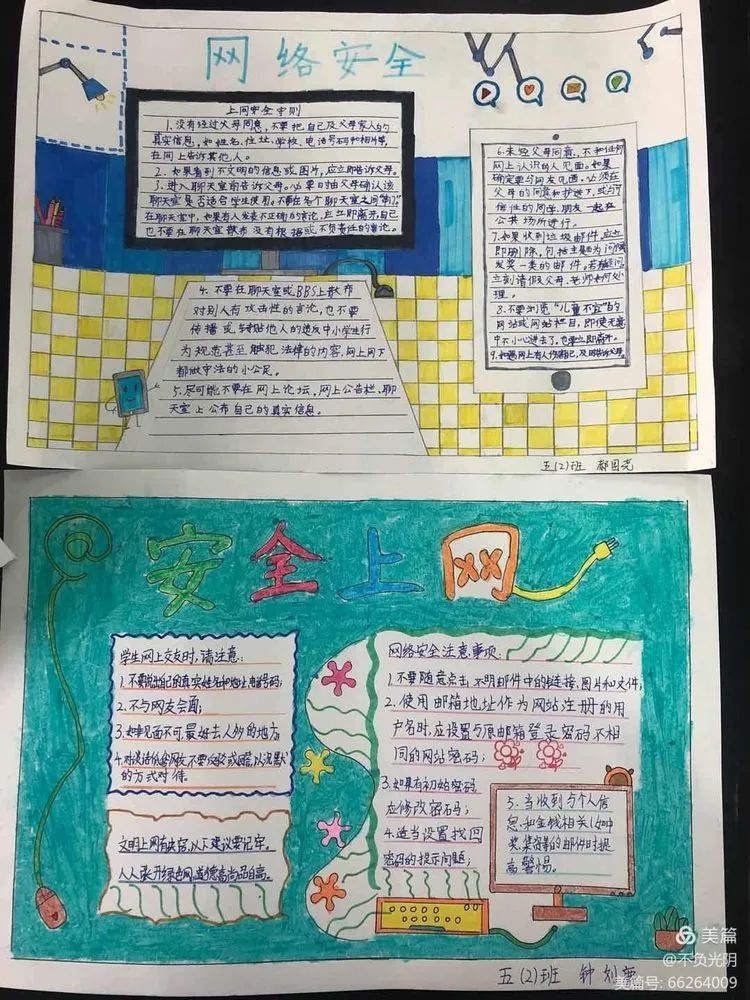 网络安全
上网安全守则
1. 没有经过父母同意,不要把自己及父母家人的
真实信息,如姓名、住址、学校、电话号码和相片等,
在网上告诉其他人。
2. 如果看到不文明的信息或图片,应立即告诉父母。
3. 进入聊天室前告诉父母。必要时由父母确认该
聊天室是否适合学生使用。不要在各个聊天室之间"串门"
在聊天室中,如果有人发表不正确的言论,应立即离开,自己
也不要在聊天室散布没有根据或不负责任的言论。
4. 不要在聊天室或BBS上散布
对别人有攻击性的言论,也不要
传播或 他人的违反中小学生行
为规范甚至触犯法律的内容,网上网下
都做守法的小公民。
5. 尽可能不要在网上论坛、网上公告栏、聊
天室上公布自己的真实信息。
6. 未经父母同意,不和任何
网上认识的人见面。如果
确定要与网友见面,必须在
父母的同意和护送下,或与可
信任的同学、朋友一起在
公共场所进行。
7. 如果收到垃圾邮件,应立
即删除,包括主题为 问候
发奖一类的邮件。若有疑问,
立刻请教父母、老师如何处
理。
8. 不要浏览"儿童不宜"的
网站或网站栏目,即使无意
中不小心进去了,也要立即离开。
9. 如遇网上有人伤害自己,及时告诉父母。
五(2)班 都国尧
安全上网
学生网上交友时,请注意:
1. 不要说出自己的真实姓名和地址,电话号码;
2. 不与网友会面;
3. 如非见面不可,最好去人多的地方
4. 对谈话低俗网友,不要反驳或回答,以沉默
的方式对待。
文明上网有内容,以下建议要记牢。
人人张开绿色网,道德高尚品自高。
网络安全注意事项:
1. 不要随意点击不明邮件中的链接、图片和文件;
2. 使用邮箱地址作为网站注册的用
户名时,应设置与原邮箱登录密码不相
同的网站密码;
3. 如果有初始密码
应修改密码;
4. 适当设置找回
密码的提示问题;
5. 当收到与个人信
息和金钱相关(如中
奖、集资等)的邮件时提
高警惕。
五(2)班 钟刘
美篇
@不负光阴
美篇号: 66264009